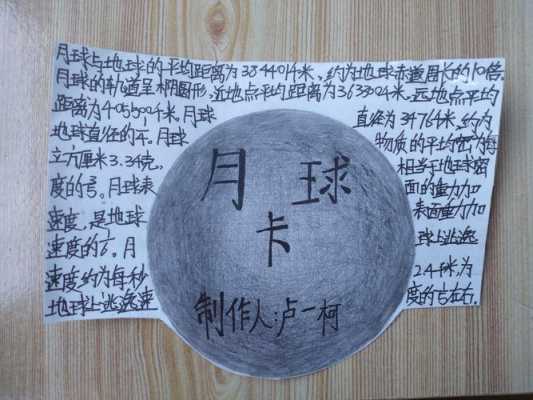 月球与地球的平均距离为384401千米、约为地球赤道周长的10倍.
月球的轨道呈椭圆形,近地点平均距离为363300千米.远地点平均
距离为405500千米.月球 直径为3476千米,约为
地球直径的 .月球 物质的平均密为每
立方厘米3.34克, 相当于地球密
度的 .月球表 面的重力加
速度,是地球 表面重力加
速度的1/6.月 球上逃逸
速度约为每秒 2.4千米,为
地球上逃逸速 度的1/5左右.
月 球
卡
制作人:卢一柯